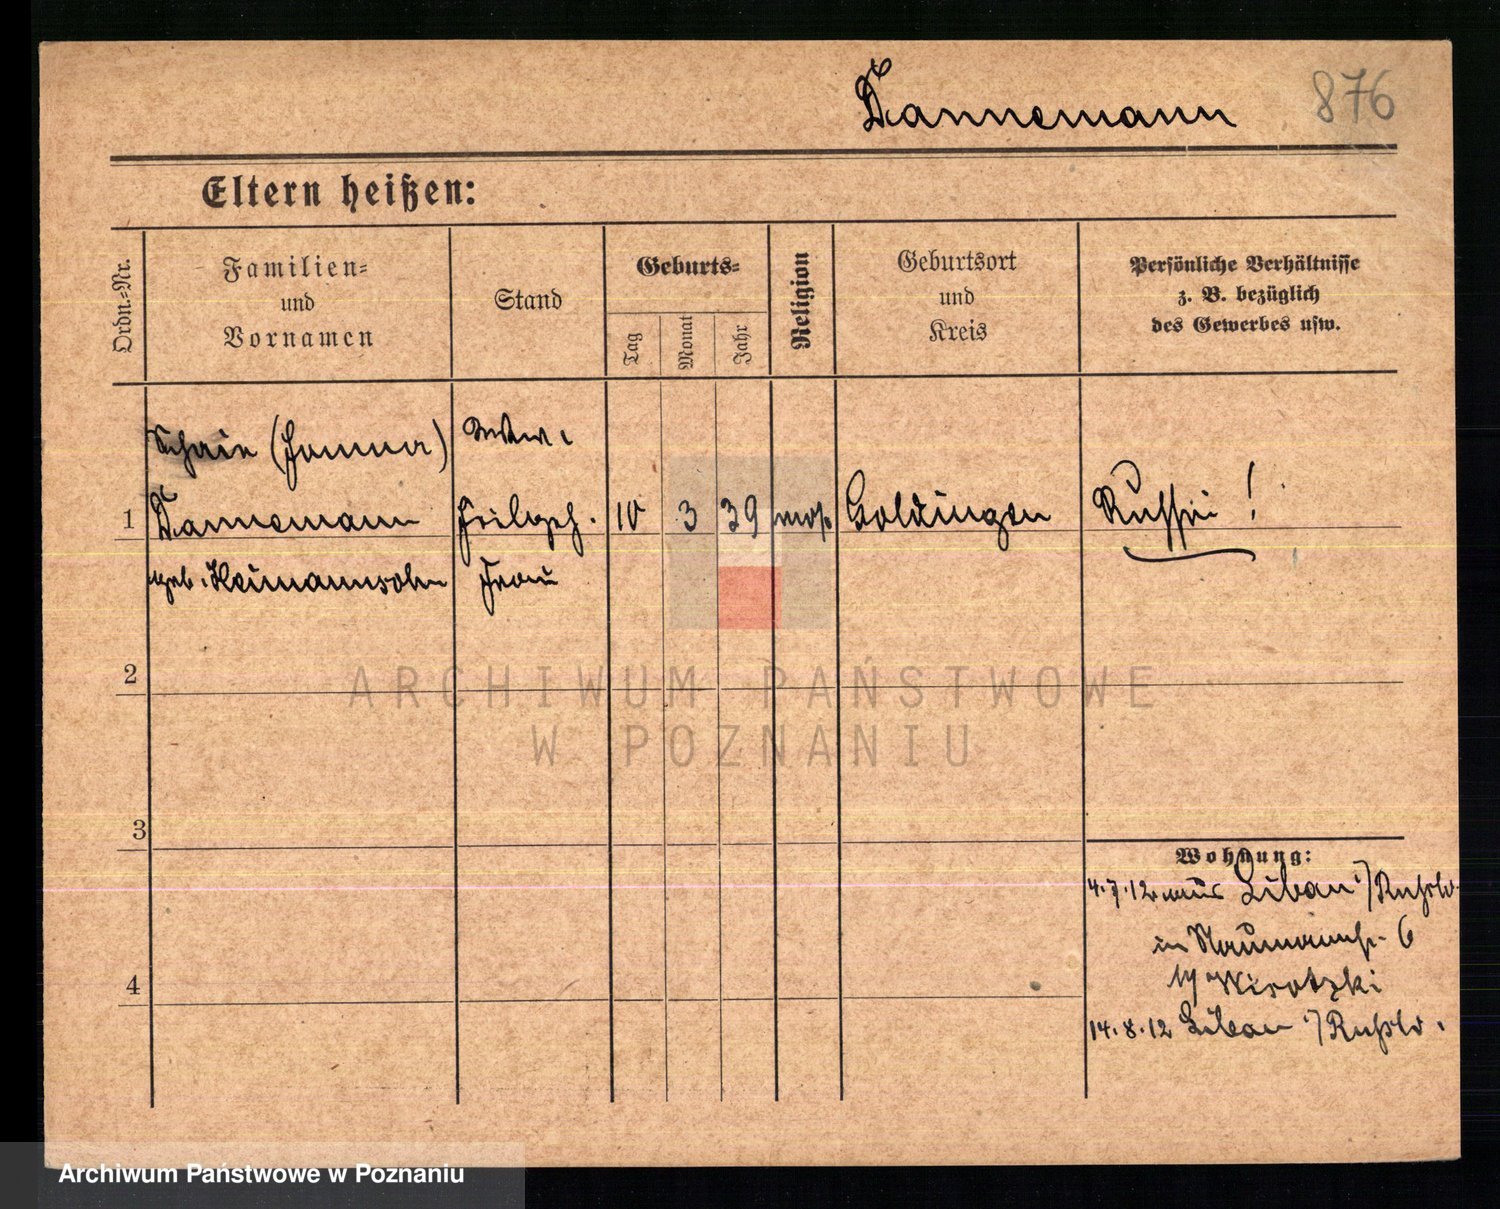 Dannemann
876
Eltern heißen:
Ordn.-Nr.
Familien-
und
Vornamen
Stand
Geburts-
Tag
Monat
Jahr
Religion
Geburtsort
und
Kreis
Persönliche Verhältnisse
z. B. bezüglich
des Gewerbes usw.
(Hanna)
1
Dannemann
10
3
39
mos.
Goldingen
Russin!
geb. Heimannsohn
Frau
2
3
4
Wohnung:
4.7.12 aus Libau i/Rußld.
in Naumannstr. 6
b/ Wirotzki
14.8.12 Libau i/Rußld.
ARCHIWUM PAŃSTWOWE
W POZNANIU
Archiwum Państwowe w Poznaniu